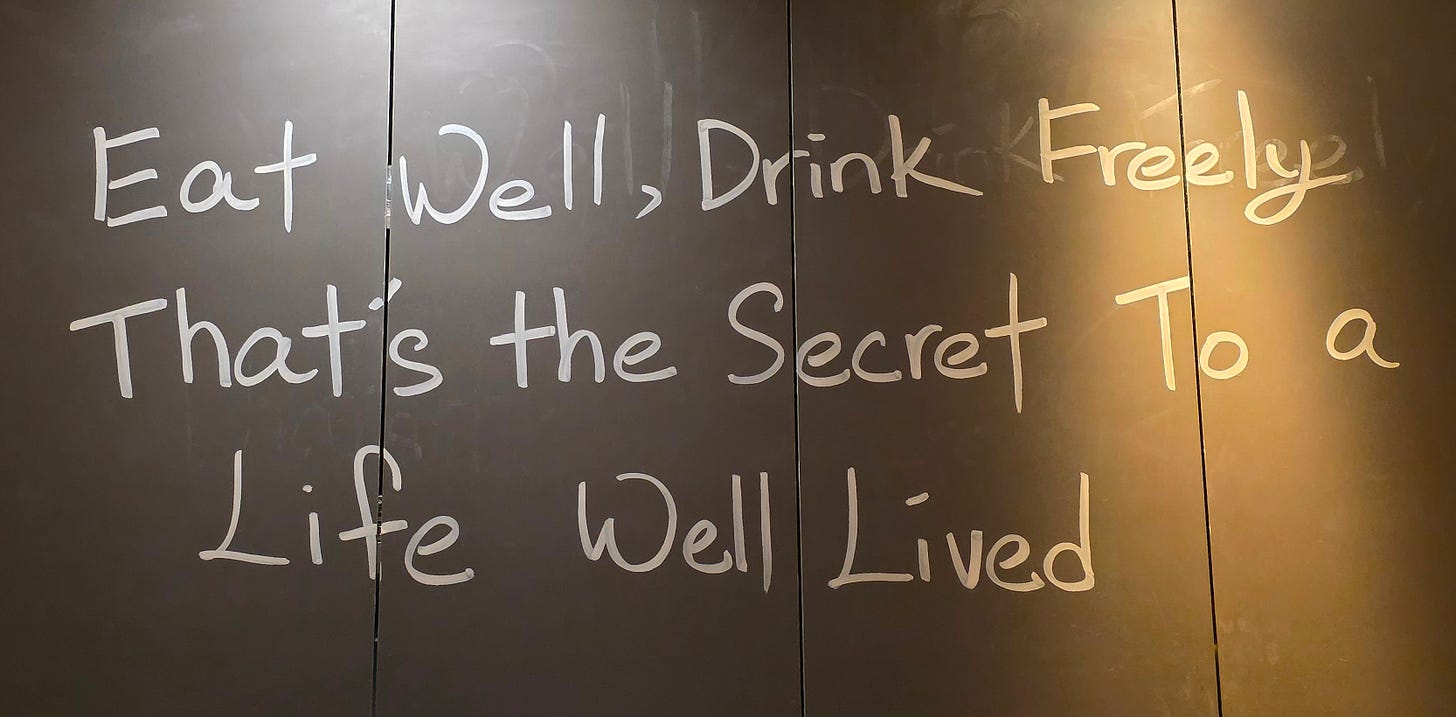 Eat Well, Drink Freely
That's the Secret To a
Life Well Lived